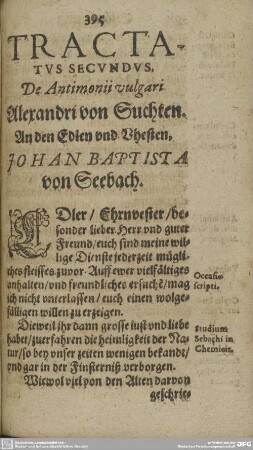 395
TRACTA-
TVS SECVNDVS,
De Antimonii vulgari
Alexandri von Suchten.
An den Edlen vnd Vhesten,
JOHAN BAPTISTA
von Seebach.
EDler / Ehrnvester / be-
sonder lieber Herr vnd guter
Freund / euch sind meine wil-
lige Dienste jederzeit mügli-
ches fleisses zuvor. Auff ewer vielfältiges
anhalten / vnd freundliches ersuchē / mag
ich nicht vnterlassen / euch einen wolge-
fälligen willen zu erzeigen.
Occasio
scripti.
Dieweil ihr dann grosse lust vnd liebe
habet / zuerfahren die heimligkeit der Na-
tur / so bey vnser zeiten wenigen bekandt /
vnd gar in der Finsterniß verborgen.
Studium
Sebachi in
Chemicis.
Wiewol viel von den Alten darvon
geschrie-